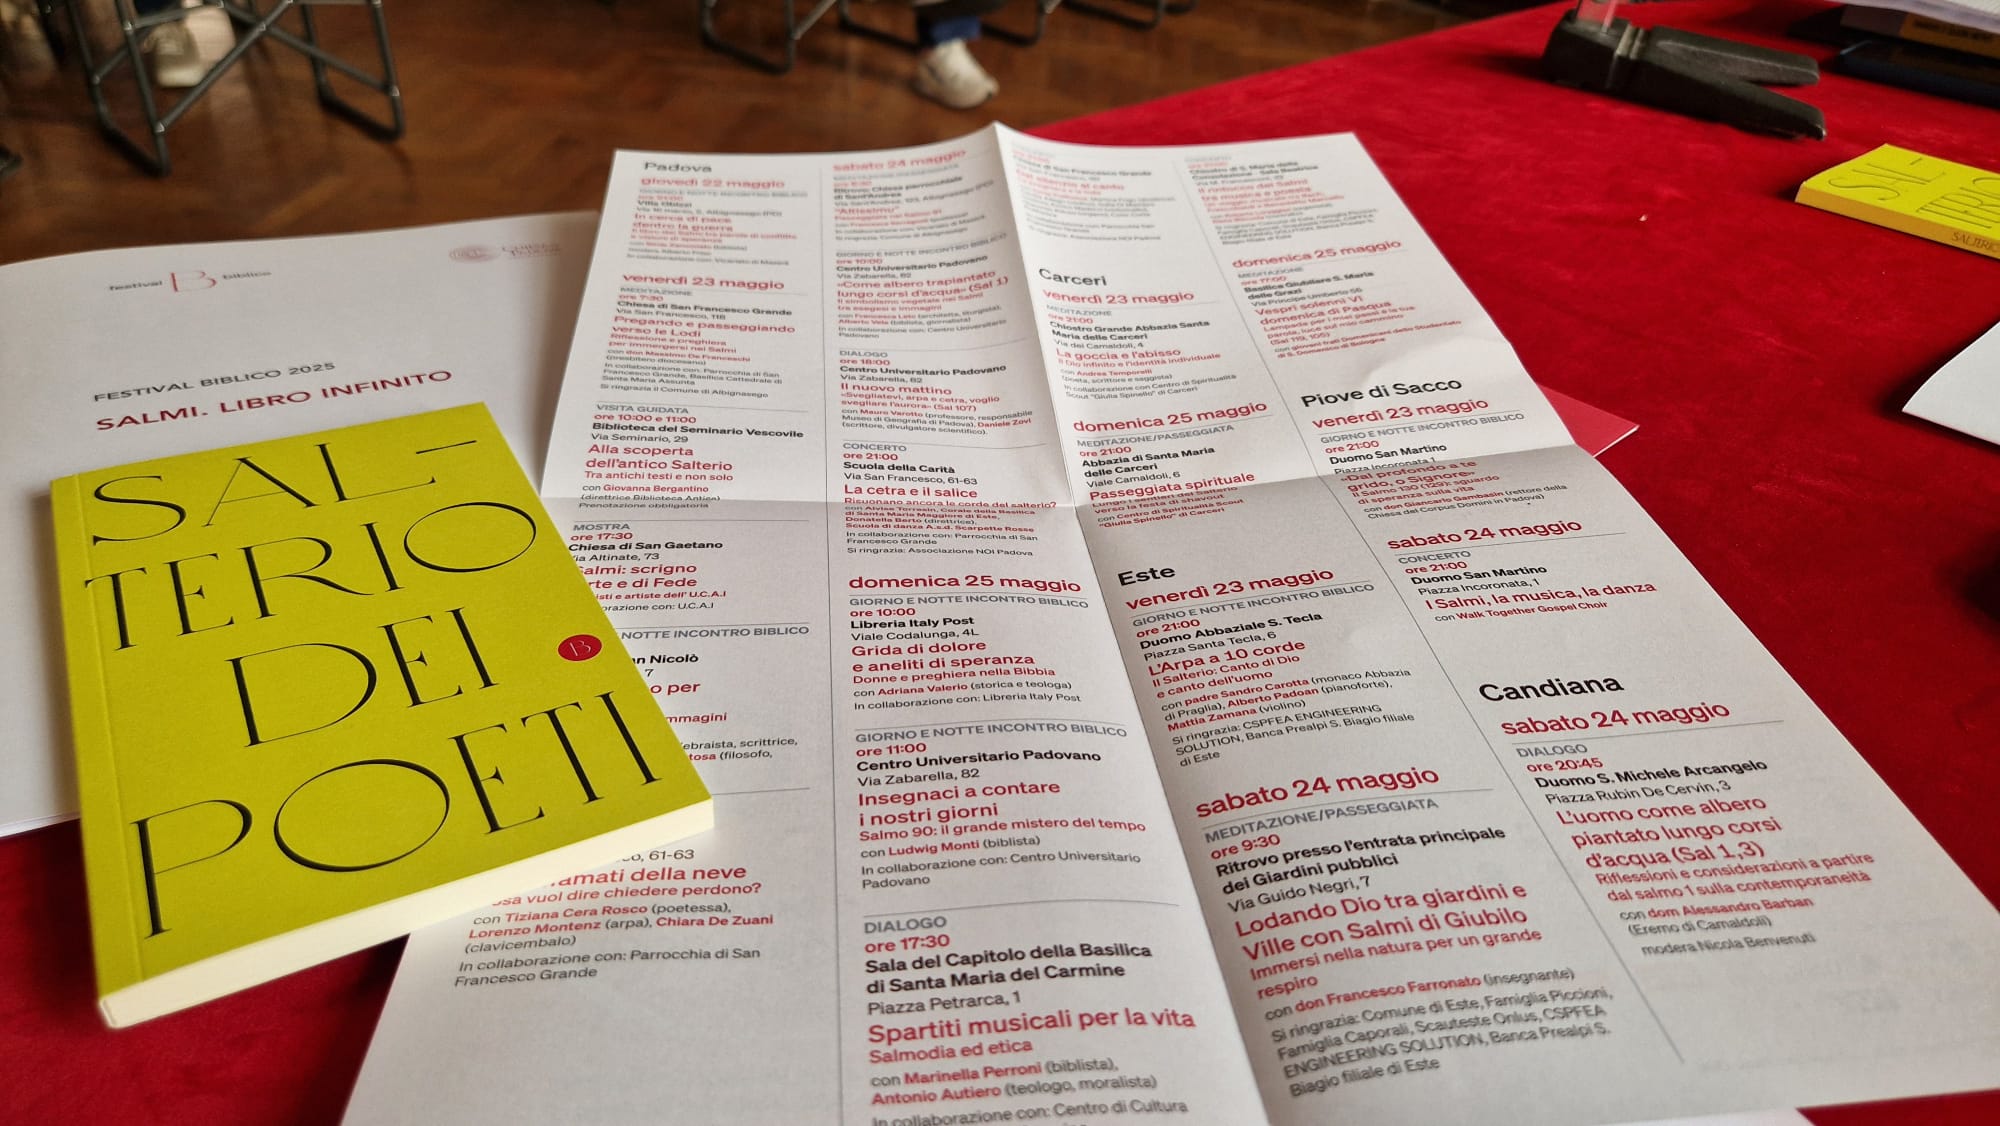 festival B biblico
FESTIVAL BIBLICO 2025
SALMI. LIBRO INFINITO
SAL–
TERIO
DEI
POETI
B
Padova
giovedì 22 maggio
GIORNO E NOTTE INCONTRO BIBLICO
ore 21:00
Villa Obizzi
In cerca di pace
dentro la guerra
venerdì 23 maggio
MEDITAZIONE
ore 7:30
Chiesa di San Francesco Grande
Via San Francesco, 118
Pregando e passeggiando
verso le Lodi
Riflessione e preghiera
per immergersi nei Salmi
con don Massimo De Franceschi
(presbitero diocesano)
In collaborazione con: Parrocchia di San
Francesco Grande, Basilica Cattedrale di
Santa Maria Assunta
Si ringrazia il Comune di Albignasego
VISITA GUIDATA
ore 10:00 e 11:00
Biblioteca del Seminario Vescovile
Via Seminario, 29
Alla scoperta
dell'antico Salterio
Tra antichi testi e non solo
con Giovanna Bergantino
(direttrice Biblioteca Antica)
Prenotazione obbligatoria
MOSTRA
ore 17:30
Chiesa di San Gaetano
Via Altinate, 73
Salmi: scrigno
rte e di Fede
isti e artiste dell' U.C.A.I
orazione con: U.C.A.I
NOTTE INCONTRO BIBLICO
an Nicolò
7
o per
mmagini
ebraista, scrittrice,
tosa (filosofo,
o, 61-63
amati della neve
sa vuol dire chiedere perdono?
con Tiziana Cera Rosco (poetessa),
Lorenzo Montenz (arpa), Chiara De Zuani
(clavicembalo)
In collaborazione con: Parrocchia di San
Francesco Grande
sabato 24 maggio
Ritrovo: Chiesa parrocchiale
di Sant'Andrea
"Altissimu"
GIORNO E NOTTE INCONTRO BIBLICO
ore 10:00
Centro Universitario Padovano
Via Zabarella, 82
«Come albero trapiantato
lungo corsi d'acqua» (Sal 1)
Il simbolismo vegetale nei Salmi
tra esegesi e immagini
con Francesca Leto (architetta, liturgista),
Alberto Vela (biblista, giornalista)
In collaborazione con: Centro Universitario
Padovano
DIALOGO
ore 18:00
Centro Universitario Padovano
Via Zabarella, 82
Il nuovo mattino
«Svegliatevi, arpa e cetra, voglio
svegliare l'aurora» (Sal 107)
con Mauro Varotto (professore, responsabile
Museo di Geografia di Padova), Daniele Zovi
(scrittore, divulgatore scientifico).
CONCERTO
ore 21:00
Scuola della Carità
Via San Francesco, 61-63
La cetra e il salice
Risuonano ancora le corde del salterio?
con Alvise Terrasin, Corale della Basilica
di Santa Maria Maggiore di Este,
Donatella Berto (direttrice),
Scuola di danza A.s.d. Scarpette Rosse
In collaborazione con: Parrocchia di San
Francesco Grande
Si ringrazia: Associazione NOI Padova
domenica 25 maggio
GIORNO E NOTTE INCONTRO BIBLICO
ore 10:00
Libreria Italy Post
Viale Codalunga, 4L
Grida di dolore
e aneliti di speranza
Donne e preghiera nella Bibbia
con Adriana Valerio (storica e teologa)
In collaborazione con: Libreria Italy Post
GIORNO E NOTTE INCONTRO BIBLICO
ore 11:00
Centro Universitario Padovano
Via Zabarella, 82
Insegnaci a contare
i nostri giorni
Salmo 90: il grande mistero del tempo
con Ludwig Monti (biblista)
In collaborazione con: Centro Universitario
Padovano
DIALOGO
ore 17:30
Sala del Capitolo della Basilica
di Santa Maria del Carmine
Piazza Petrarca, 1
Spartiti musicali per la vita
Salmodia ed etica
con Marinella Perroni (biblista),
Antonio Autiero (teologo, moralista)
In collaborazione con: Centro di Cultura
Chiesa di San Francesco Grande
Dal silenzio al canto
Si ringrazia: Associazione NOI Padova
Carceri
venerdì 23 maggio
MEDITAZIONE
ore 21:00
Chiostro Grande Abbazia Santa
Maria delle Carceri
Via dei Camaldoli, 4
La goccia e l'abisso
Il Dio infinito e l'identità individuale
con Andrea Temporelli
(poeta, scrittore e saggista)
In collaborazione con Centro di Spiritualità
Scout "Giulia Spinello" di Carceri
domenica 25 maggio
MEDITAZIONE/PASSEGGIATA
ore 21:00
Abbazia di Santa Maria
delle Carceri
Viale Camaldoli, 6
Passeggiata spirituale
Lungo i sentieri del Salterio
verso la festa di shavuot
con Centro di Spiritualità Scout
"Giulia Spinello" di Carceri
Este
venerdì 23 maggio
GIORNO E NOTTE INCONTRO BIBLICO
ore 21:00
Duomo Abbaziale S. Tecla
Piazza Santa Tecla, 6
L'Arpa a 10 corde
Il Salterio: Canto di Dio
e canto dell'uomo
con padre Sandro Carotta (monaco Abbazia
di Praglia), Alberto Padoan (pianoforte),
Mattia Zamana (violino)
Si ringrazia: CSPFEA ENGINEERING
SOLUTION, Banca Prealpi S. Biagio filiale
di Este
sabato 24 maggio
MEDITAZIONE/PASSEGGIATA
ore 9:30
Ritrovo presso l'entrata principale
dei Giardini pubblici
Via Guido Negri, 7
Lodando Dio tra giardini e
Ville con Salmi di Giubilo
Immersi nella natura per un grande
respiro
con don Francesco Farronato (insegnante)
Si ringrazia: Comune di Este, Famiglia Piccioni,
Famiglia Caporali, Scauteste Onlus, CSPFEA
ENGINEERING SOLUTION, Banca Prealpi S.
Biagio filiale di Este
CONCERTO
Chiostro di S. Maria delle
Consolazione - Sala Beatrice
Il rimbocco dei Salmi
tra musica e poesia
domenica 25 maggio
MEDITAZIONE
ore 17:00
Basilica Giubilare S. Maria
delle Grazi
Via Principe Umberto 56
Vespri solenni VI
domenica di Pasqua
Lampada per i miei passi è la tua
parola, luce sul mio cammino
(Sal 119, 105)
con giovani frati Domenicani dello Studentato
di S. Domenico di Bologna
Piove di Sacco
venerdì 23 maggio
GIORNO E NOTTE INCONTRO BIBLICO
ore 21:00
Duomo San Martino
Piazza Incoronata 1
«Dal profondo a te
grido, o Signore»
Il Salmo 130 (129): sguardo
di speranza sulla vita
con don Giancarlo Gambasin (rettore della
Chiesa del Corpus Domini in Padova)
sabato 24 maggio
CONCERTO
ore 21:00
Duomo San Martino
Piazza Incoronata, 1
I Salmi, la musica, la danza
con Walk Together Gospel Choir
Candiana
sabato 24 maggio
DIALOGO
ore 20:45
Duomo S. Michele Arcangelo
Piazza Rubin De Cervin, 3
L'uomo come albero
piantato lungo corsi
d'acqua (Sal 1,3)
Riflessioni e considerazioni a partire
dal salmo 1 sulla contemporaneità
con dom Alessandro Barban
(Eremo di Camaldoli)
modera Nicola Benvenuti
SAL–
TERIO